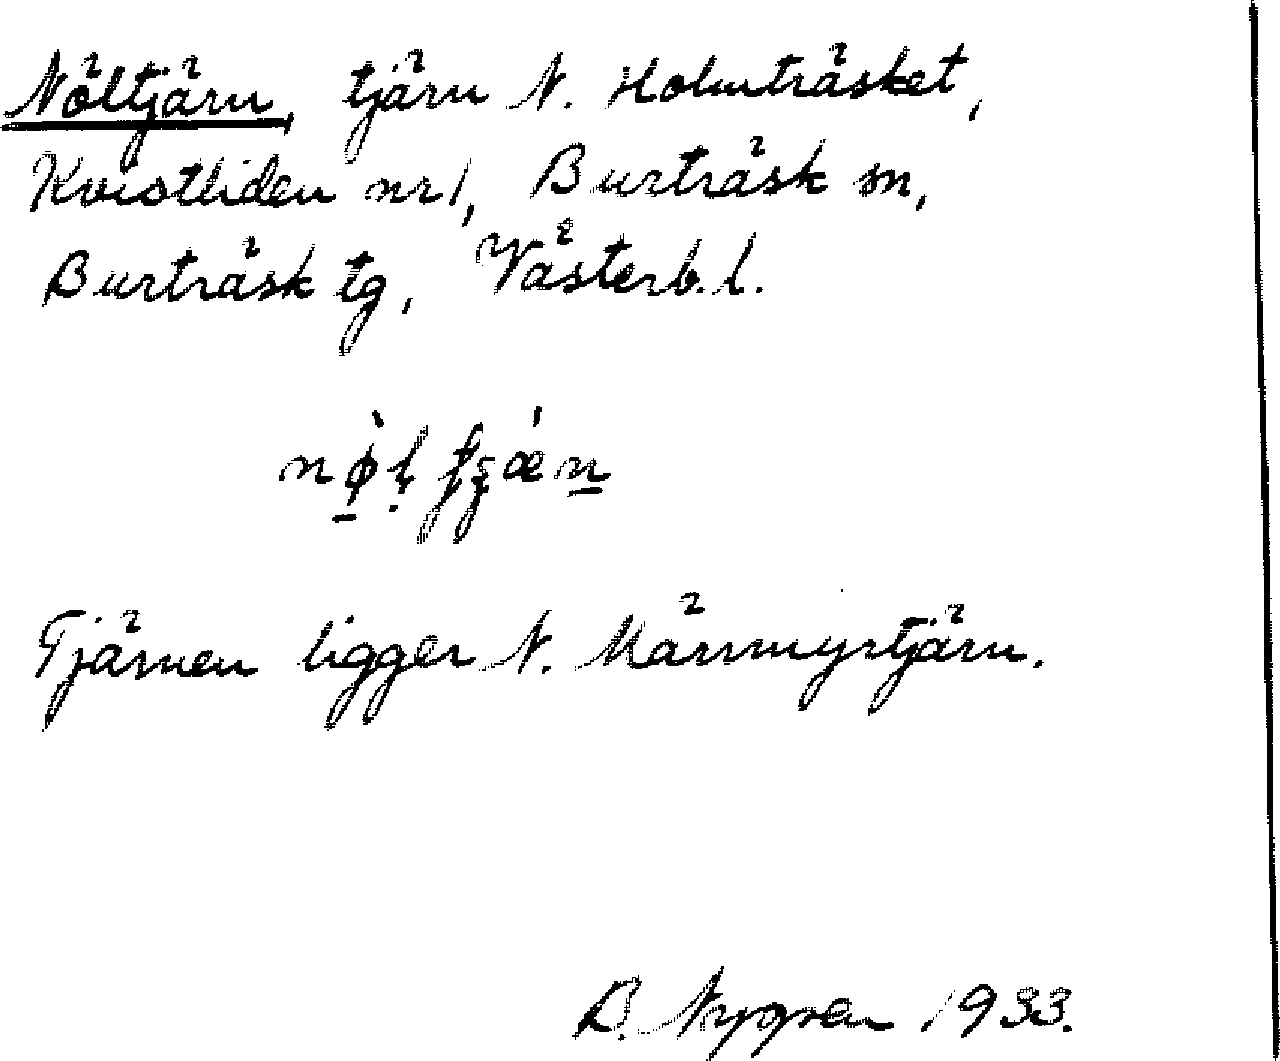 Nöltjärn, tjärn N. Holmträsket,
Kvistliden nr 1, Burträsk sn,
Burträsk tg, Västerb. l.
Tjärnen ligger N. Märrmyrtjärn.
B. Nygren 1933.